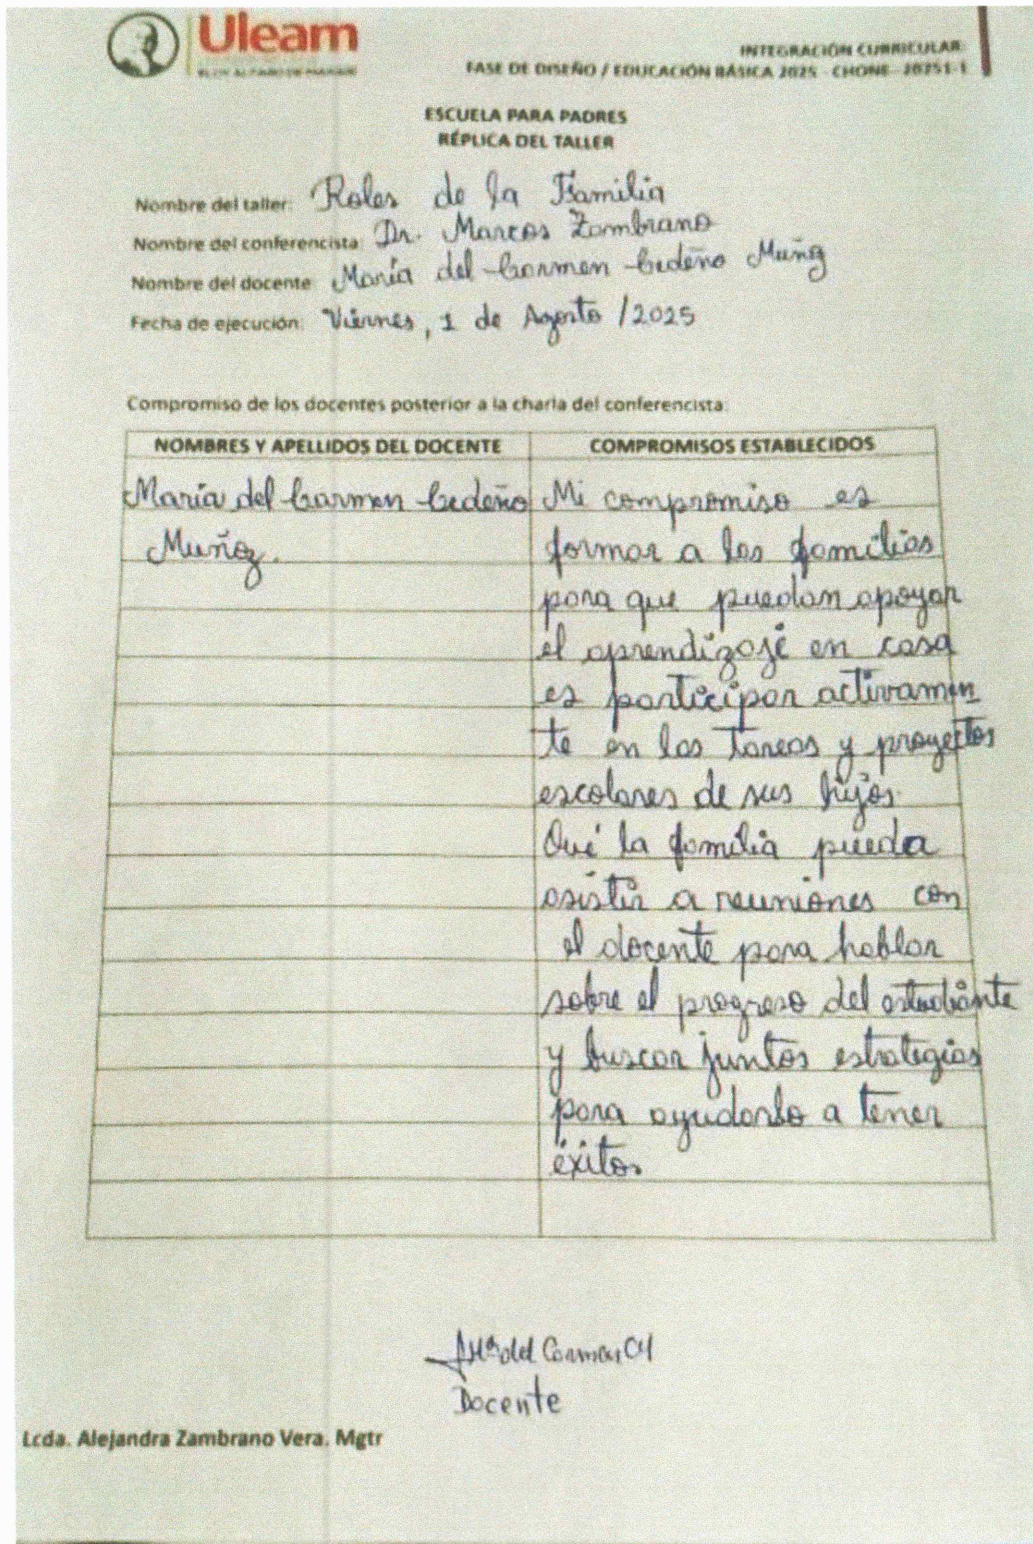 Uleam
INTEGRACIÓN CURRICULAR
FASE DE DISEÑO / EDUCACIÓN BÁSICA 2025 - CHONE - 20251-1
ESCUELA PARA PADRES
RÉPLICA DEL TALLER
Nombre del taller: Roles de la Familia
Nombre del conferencista: Dr. Marcos Zambrano
Nombre del docente: María del Carmen Cedeño Muñoz
Fecha de ejecución: Viernes, 1 de Agosto /2025
Compromiso de los docentes posterior a la charla del conferencista:
NOMBRES Y APELLIDOS DEL DOCENTE COMPROMISOS ESTABLECIDOS
María del Carmen Cedeño Mi compromiso es
Muñoz. formar a las familias
para que puedan apoyar
el aprendizaje en casa
es participar activamen
te en las tareas y proyectos
escolares de sus hijos.
Qué la familia pueda
asistir a reuniones con
el docente para hablar
sobre el progreso del estudiante
y buscar juntos estrategias
para ayudarlo a tener
éxitos.
del Carmen CM
Docente
Lcda. Alejandra Zambrano Vera. Mgtr